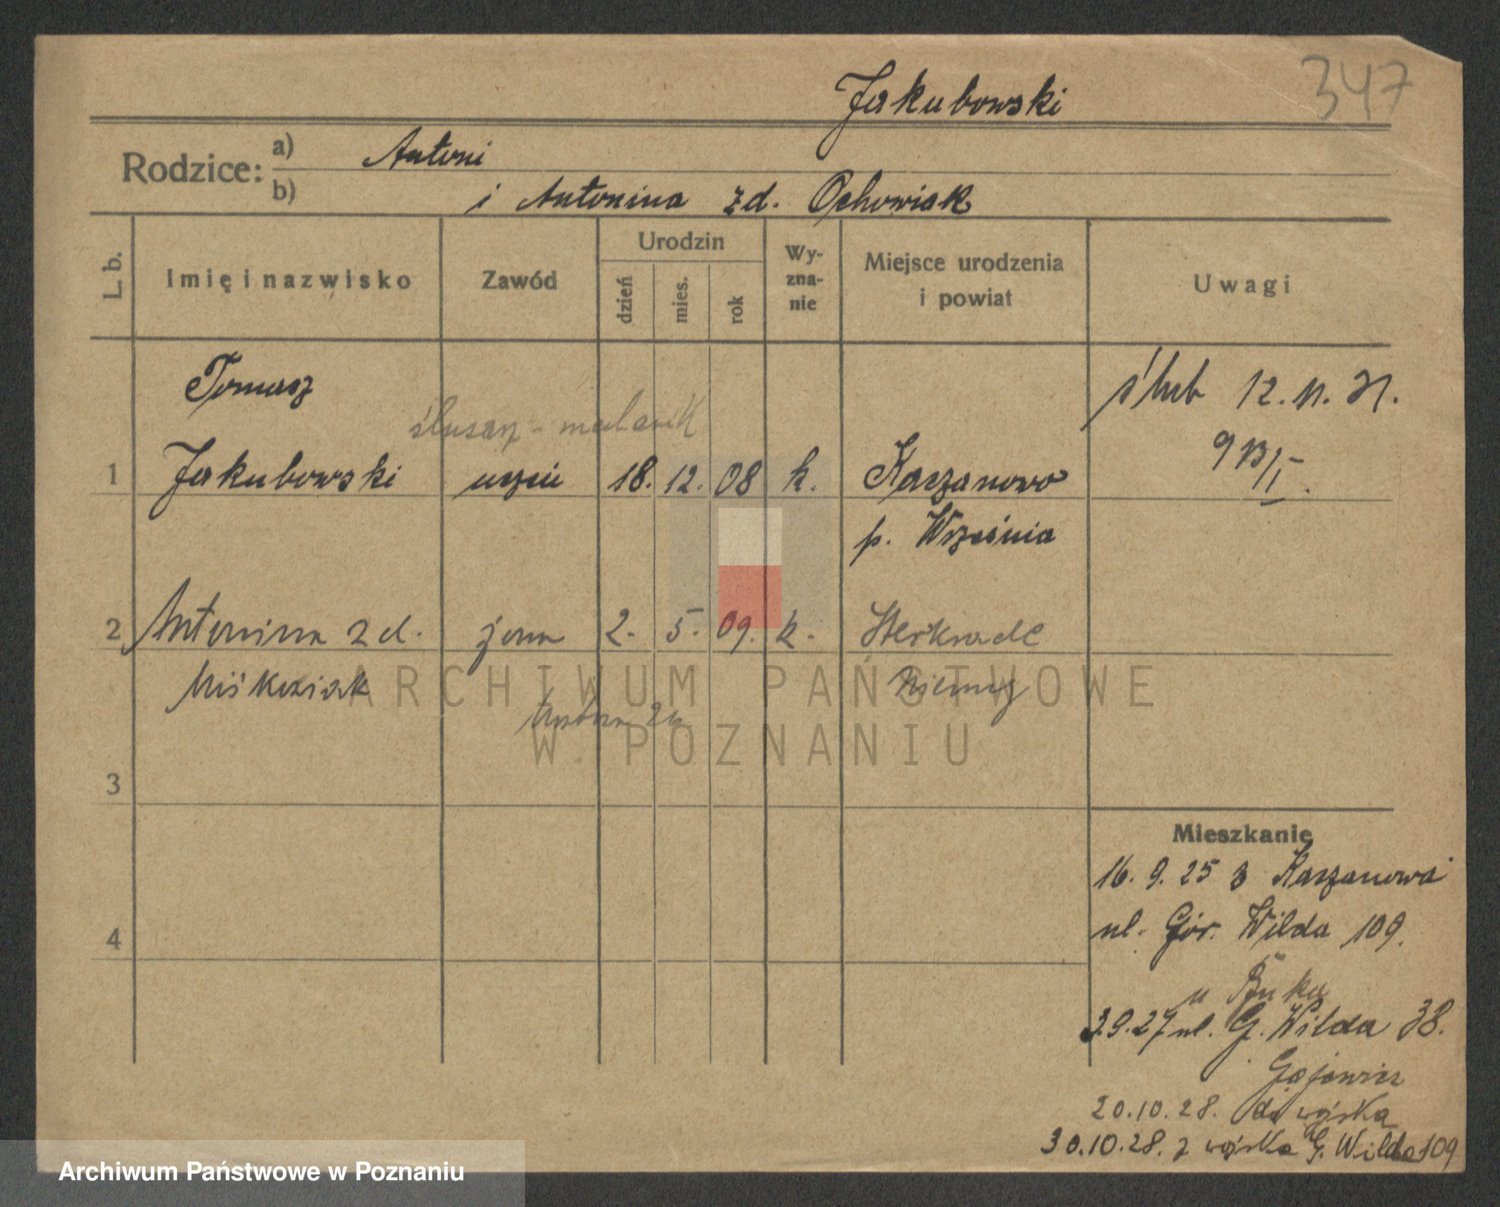 Jakubowski
347
Rodzice: a) Antoni
b) i Antonina zd. Ochowiak
L. b.
Imię i nazwisko
Zawód
Urodzin
dzień
mies.
rok
Wy-
zna-
nie
Miejsce urodzenia
i powiat
Uwagi
Tomasz
ślub 12.11.31.
ślusarz-
1 Jakubowski uczeń 18. 12. 08 k. Kaczanowo
p. Września
2 Antonina zd. żona 2. 5. 09. k. Sterkrade
Niemcy
ARCHIWUM PAŃSTWOWE
W POZNANIU
3
Mieszkanie
16. 9. 25 z Kaczanowa
ul. Gór. Wilda 109.
4
u
3.9.27 ul. G. Wilda 38.
20.10.28. do wojska
30.10.28. z wojska G. Wilda 109
Archiwum Państwowe w Poznaniu